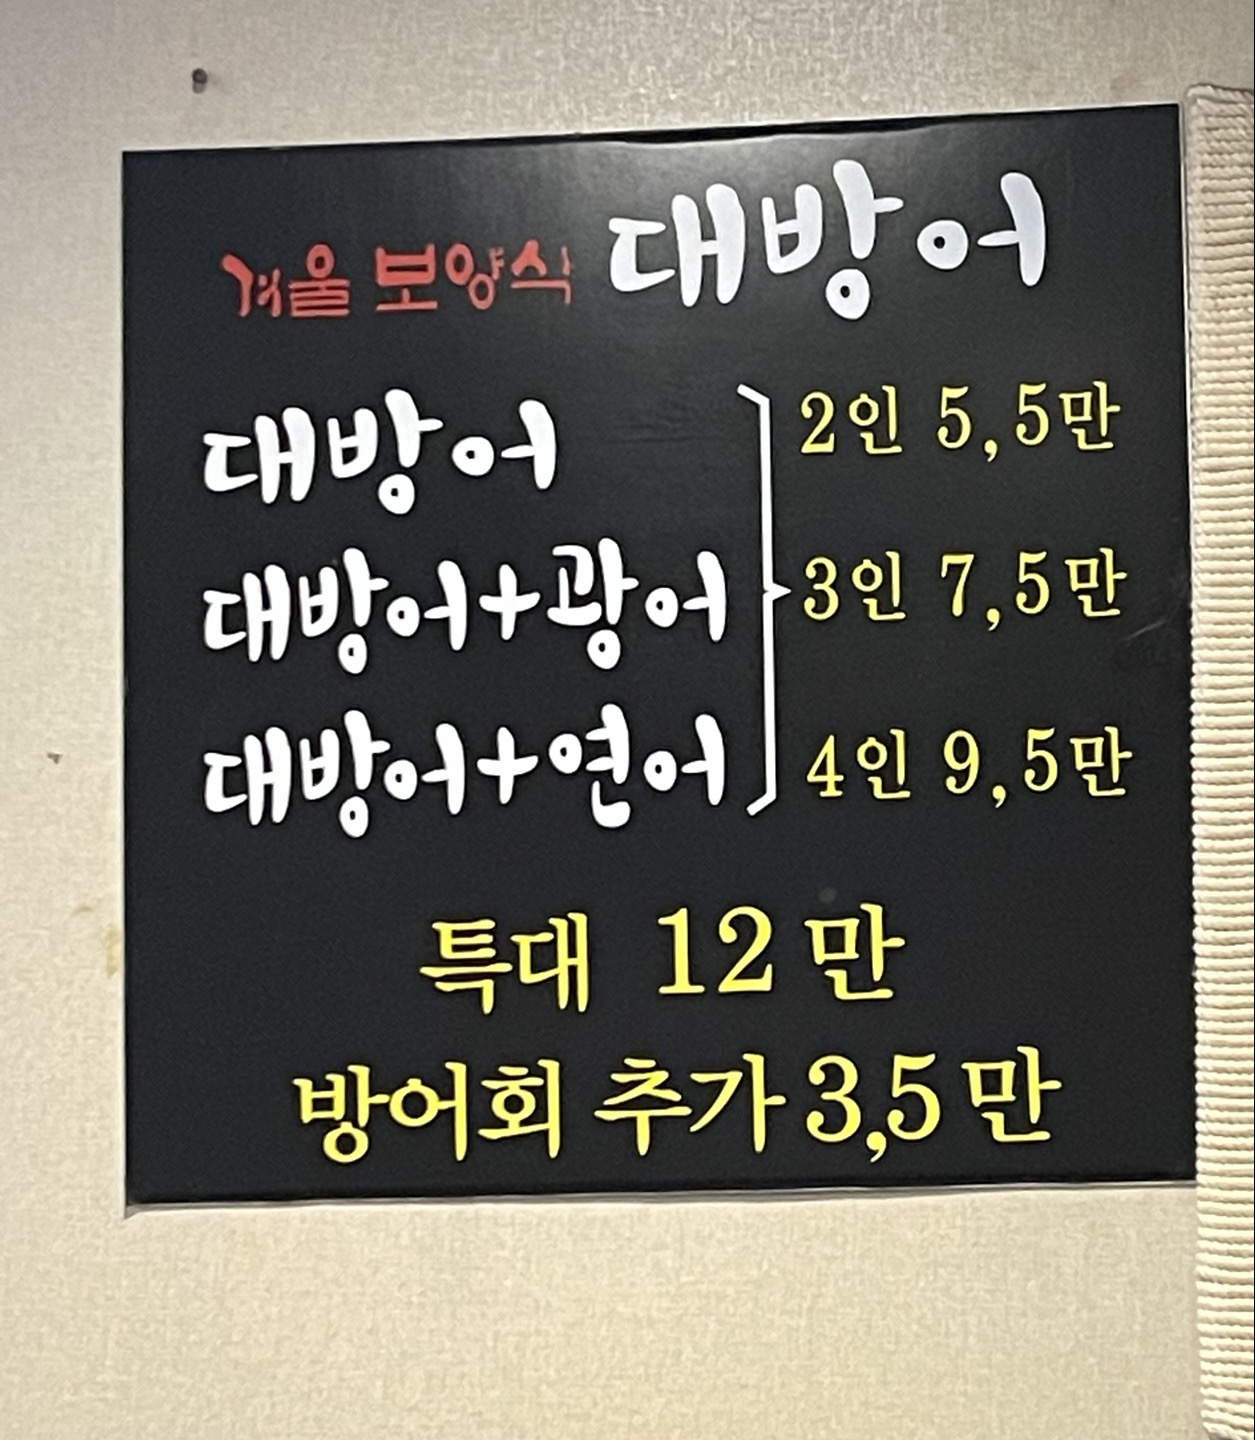 겨울 보양식 대방어
대방어
대방어+광어
대방어+연어
2인 5,5만
3인 7,5만
4인 9,5만
특대 12만
방어회 추가 3,5만